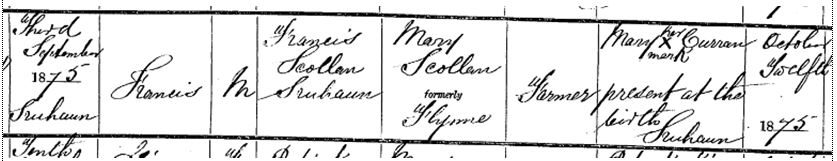 Third
September
1875
Sruhaun
Francis
M
Francis
Scollan
Sruhaun
Mary
Scollan
formerly
Flynne
Farmer
Mary her Curran
X
mark
present at the
birth
Sruhaun
October
Twelfth
1875
Tenth